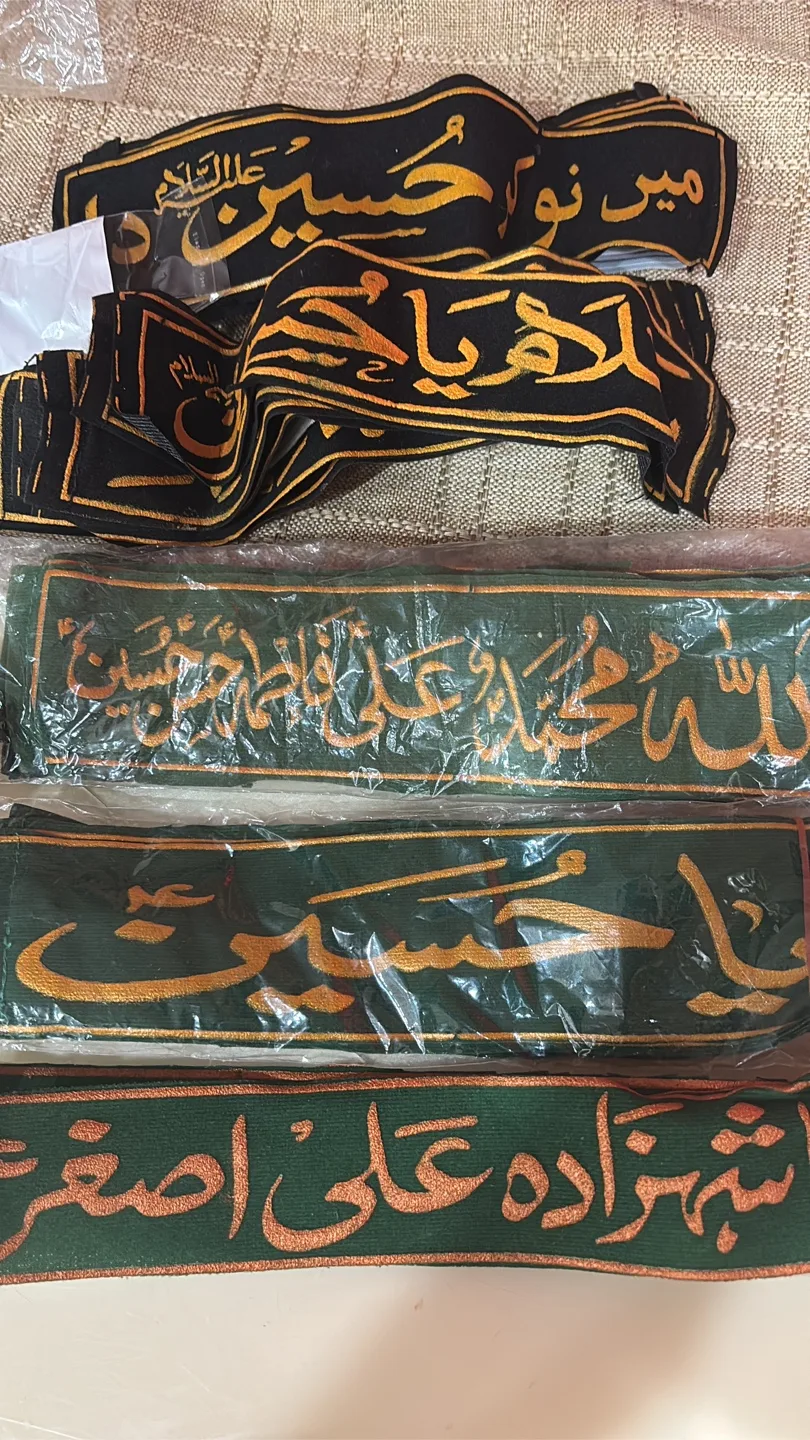 میں نوکر حُسین علیہ السلام دا
لام یا حُسین السلام
اللہ محمد و علی فاطمہ حسن حسین
یا حُسین ع
شہزادہ علی اصغر ع